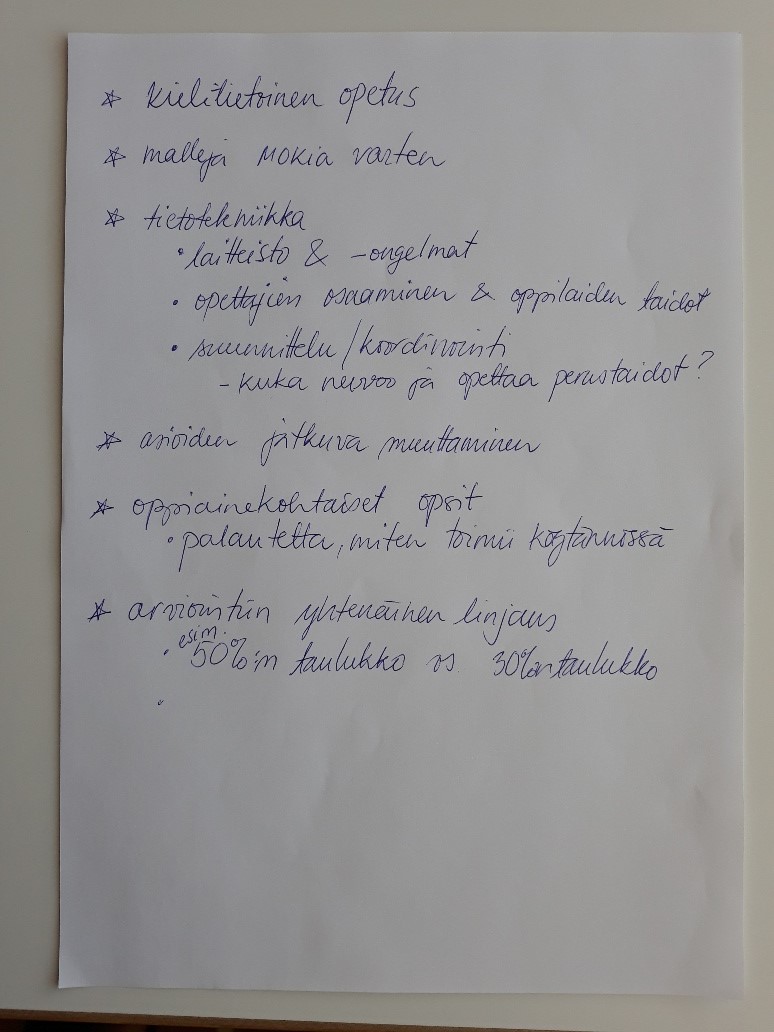 * kielitietoinen opetus
* malleja MOKIA varten
* tietotekniikka
• laitteisto & -ongelmat
• opettajien osaaminen & oppilaiden taidot
• suunnittelu/koordinointi
- kuka neuvoo ja opettaa perustaidot?
* asioiden jatkuva muuttaminen
* oppiainekohtaiset opsit
• palautetta, miten toimii käytännössä
* arviointiin yhtenäinen linjaus
• esim. 50%:n taulukko vs 30%:n taulukko